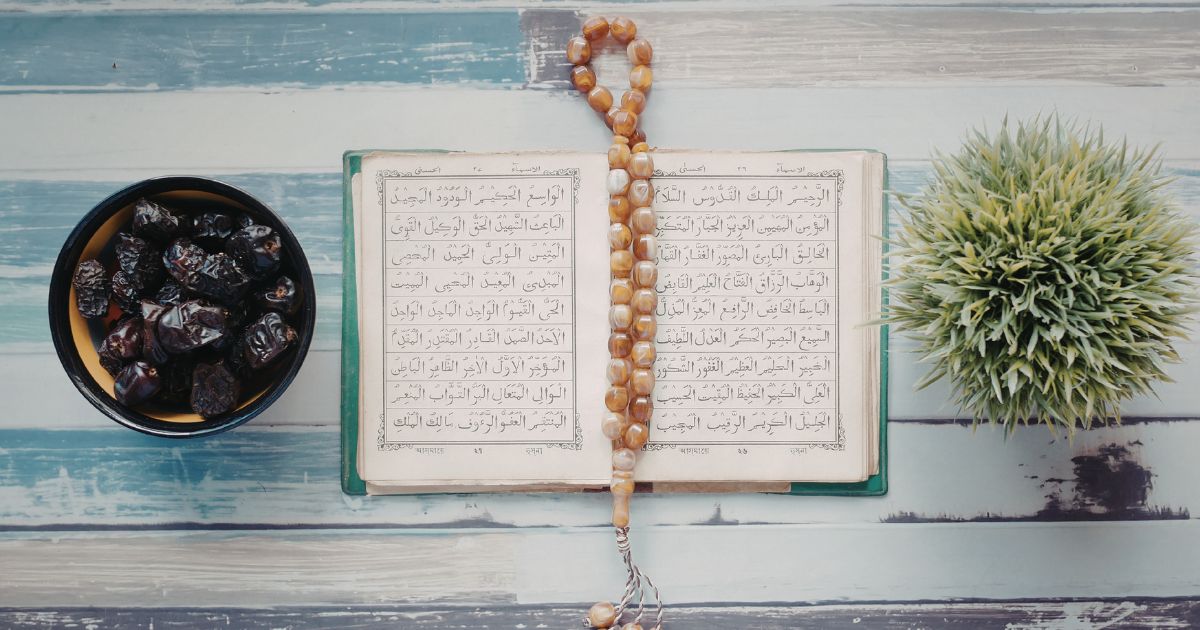 الاسماء ٢٦ الحسنى
الرَّحِيْمُ الْمَلِكُ الْقُدُّوْسُ السَّلَامُ
الْمُؤْمِنُ الْمُهَيْمِنُ الْعَزِيْزُ الْجَبَّارُ الْمُتَكَبِّرُ
الْخَالِقُ الْبَارِئُ الْمُصَوِّرُ الْغَفَّارُ الْقَهَّارُ
الْوَهَّابُ الرَّزَّاقُ الْفَتَّاحُ الْعَلِيْمُ الْقَابِضُ
الْبَاسِطُ الْخَافِضُ الرَّافِعُ الْمُعِزُّ الْمُذِلُّ
السَّمِيْعُ الْبَصِيْرُ الْحَكَمُ الْعَدْلُ اللَّطِيْفُ
الْخَبِيْرُ الْحَلِيْمُ الْعَظِيْمُ الْغَفُوْرُ الشَّكُوْرُ
الْعَلِيُّ الْكَبِيْرُ الْحَفِيْظُ الْمُقِيْتُ الْحَسِيْبُ
الْجَلِيْلُ الْكَرِيْمُ الرَّقِيْبُ الْمُجِيْبُ
আসমায়ে ২৬ হুসনা
الاسماء ٢٧ الحسنى
الْوَاسِعُ الْحَكِيْمُ الْوَدُوْدُ الْمَجِيْدُ
الْبَاعِثُ الشَّهِيْدُ الْحَقُّ الْوَكِيْلُ الْقَوِيُّ
الْمَتِيْنُ الْوَلِيُّ الْحَمِيْدُ الْمُحْصِي
الْمُبْدِئُ الْمُعِيْدُ الْمُحْيِي الْمُمِيْتُ
الْحَيُّ الْقَيُّوْمُ الْوَاجِدُ الْمَاجِدُ الْوَاحِدُ
الْاَحَدُ الصَّمَدُ الْقَادِرُ الْمُقْتَدِرُ الْمُقَدِّمُ
الْمُؤَخِّرُ الْاَوَّلُ الْاٰخِرُ الظَّاهِرُ الْبَاطِنُ
الْوَالِي الْمُتَعَالِ الْبَرُّ التَّوَّابُ الْمُنْعِمُ
الْمُنْتَقِمُ الْعَفُوُّ الرَّءُوْفُ مَالِكُ الْمُلْكِ
আসমায়ে ২৭ হুসনা